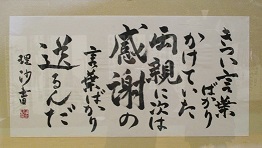 きつい言葉
ばかり
かけていた
両親に次は
感謝の
言葉ばかり
送るんだ
理沙書